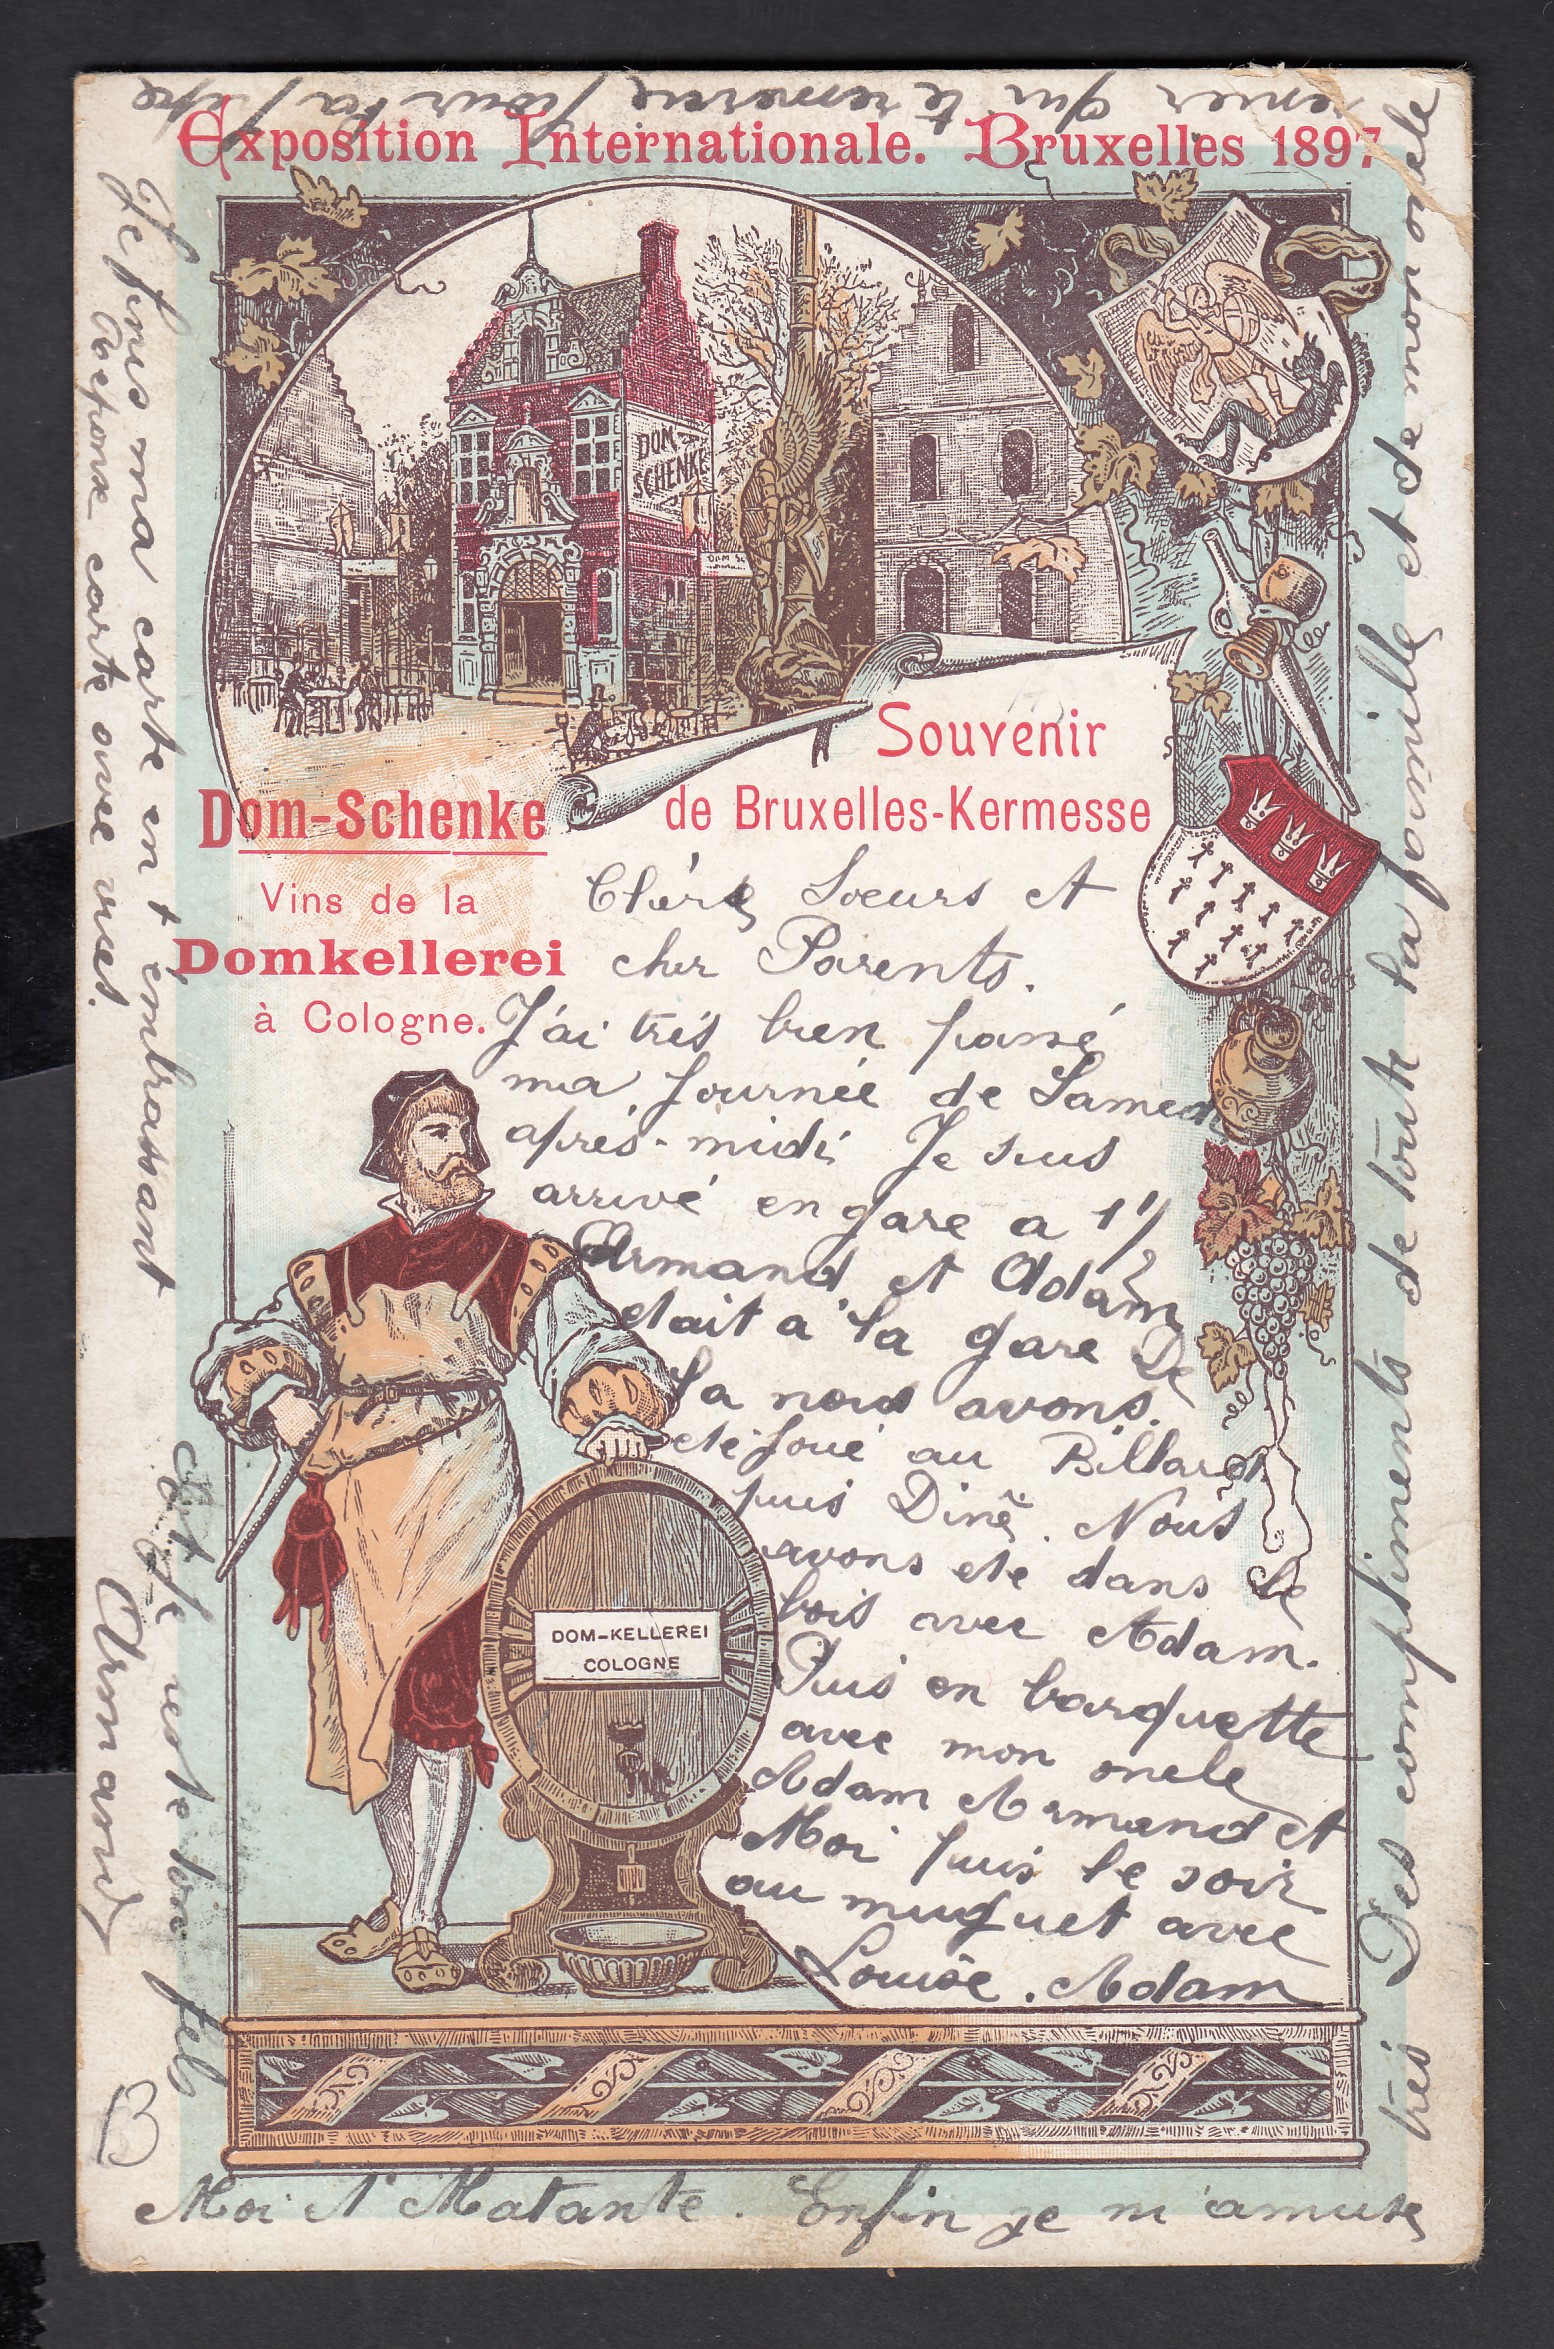 Exposition Internationale. Bruxelles 1897
DOM
SCHENKE
Souvenir
de Bruxelles-Kermesse
Dom-Schenke
Vins de la
Domkellerei
à Cologne.
DOM-KELLEREI
COLOGNE
Chèrs Soeurs et
cher Parents.
J'ai trés bien passé
ma Journée de Samedi
aprés-midi Je suis
arrivé en gare a 1 1/2
Armand et Adam
etait a la gare De
la nous avons
eté Joué au Billard
puis Diné. Nous
avons eté dans le
bois avec Adam.
Puis en barquette
avec mon oncle
Adam Armand et
Moi puis le soir
au muguet avec
Louise. Adam
Moi et Matante. Enfin je m'amuse
trés Des compliments de toute la famille et de mononcle
qui te remercie pour ta pipe
Je finis ma carte en t'embrassant
Reponse carte avec vues.
et Je reste ton fils
Armand